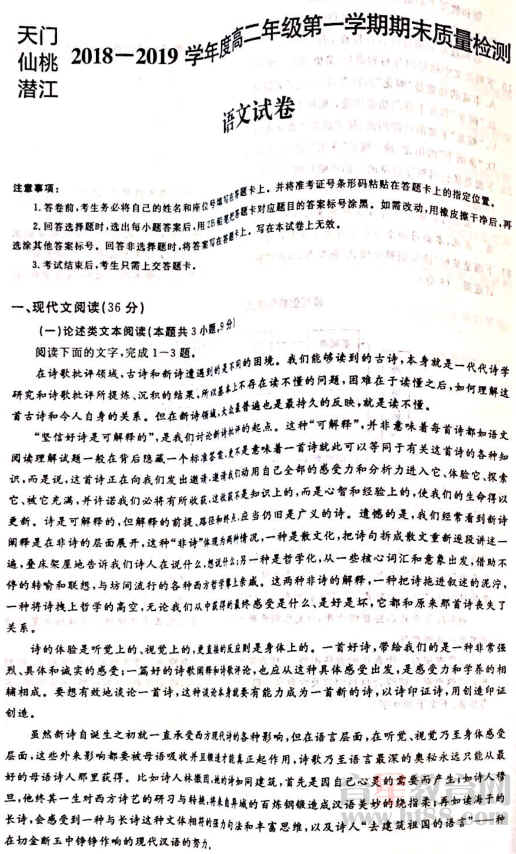 天门
仙桃
潜江
2018—2019学年度高二年级第一学期期末质量检测
语文试卷
注意事项：
1.答卷前，考生务必将自己的姓名和座位号填写在答题卡上，并将准考证号条形码粘贴在答题卡上的指定位置。
2.回答选择题时，选出每小题答案后，用2B铅笔把答题卡对应题目的答案标号涂黑。如需改动，用橡皮擦干净后，再
选涂其他答案标号。回答非选择题时，将答案写在答题卡上。写在本试卷上无效。
3.考试结束后，考生只需上交答题卡。
一、现代文阅读(36分)
(一)论述类文本阅读(本题共3小题，9分)
阅读下面的文字，完成1～3题。
在诗歌批评领域，古诗和新诗遭遇到的是不同的困境。我们能够读到的古诗，本身就是一代代诗学
研究和诗歌批评所提炼、沉积的结果，所以基本上不存在读不懂的问题，困难在于读懂之后，如何理解这
首古诗和今人自身的关系。但在新诗领域，大众最普遍也是最持久的反映，就是读不懂。
“坚信好诗是可解释的”，是我们讨论新诗批评的起点。这种“可解释”，并非意味着每首诗都如语文
阅读理解试题一般在背后隐藏一个标准答案，更不是意味着一首诗就此可以等同于有关这首诗的各种知
识，而是说，这首诗正在向我们发出邀请，邀请我们动用自己全部的感受力和分析力进入它、体验它、探索
它、被它充满，并许诺我们必将有所收获，这收获不是知识上的，而是心智和经验上的，使我们的生命得以
更新。诗是可解释的，但解释的前提、路径和终点，应当仍旧是广义的诗。遗憾的是，我们经常看到新诗
阐释是在非诗的层面展开，这种“非诗”体现为两种情况，一种是散文化，把诗句拆成散文重新逐段讲述一
遍，叠床架屋地告诉我们诗人在说什么、想说什么；另一种是哲学化，从一些核心词汇和意象出发，借助不
停的转喻和联想，与坊间流行的各种西方哲学攀上亲戚。这两种非诗的解释，一种把诗拖进叙述的泥泞，
一种将诗拽上哲学的高空，无论我们从中获得的最终感受是什么、是好是坏，它都和原来那首诗丧失了
关系。
诗的体验是听觉上的、视觉上的，更直接的反应则是身体上的。一首好诗，带给我们的是一种非常强
烈、具体和诚实的感受；一篇好的诗歌阐释和诗歌评论，也应从这种具体感受出发，是感受力和学养的相
辅相成。要想有效地谈论一首诗，这种谈论本身就要有能力成为一首新的诗，以诗印证诗，用创造印证
创造。
虽然新诗自诞生之初就一直承受西方现代诗的各种影响，但在语言层面，在听觉、视觉乃至身体感受
层面，这些外来影响都要被母语吸收并且锻造才能真正起作用，诗歌乃至语言最深的奥秘永远只能从最
好的母语诗人那里获得。比如诗人林徽因，她的诗如同建筑，首先是因自己心灵的需要而产生；如诗人穆
旦，他终其一生对西方诗艺的研习与转换，将来自异域的百炼钢锻造成汉语美妙的绕指柔；再如读海子的
长诗，会感受到一种与长诗这种文体相符的强力句法和丰富思维，以及诗人“去建筑祖国的语言”——一种
在切金断玉中铮铮作响的现代汉语的努力。